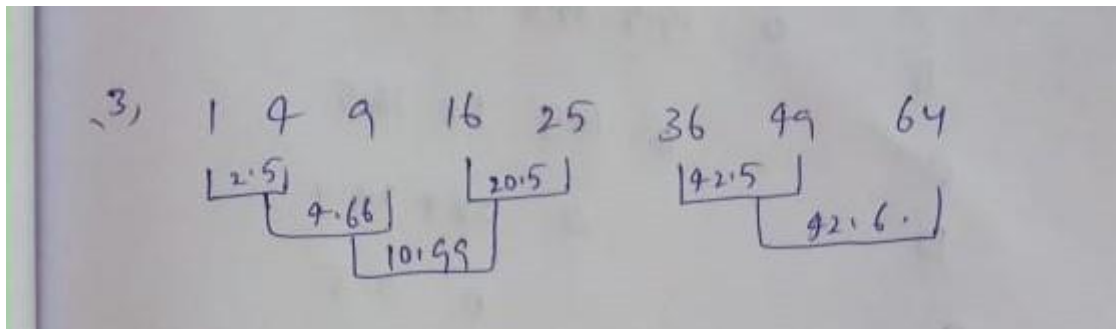 3, 1 4 9 16 25 36 49 64
2.5 20.5 42.5
4.66 42.6.
10.99